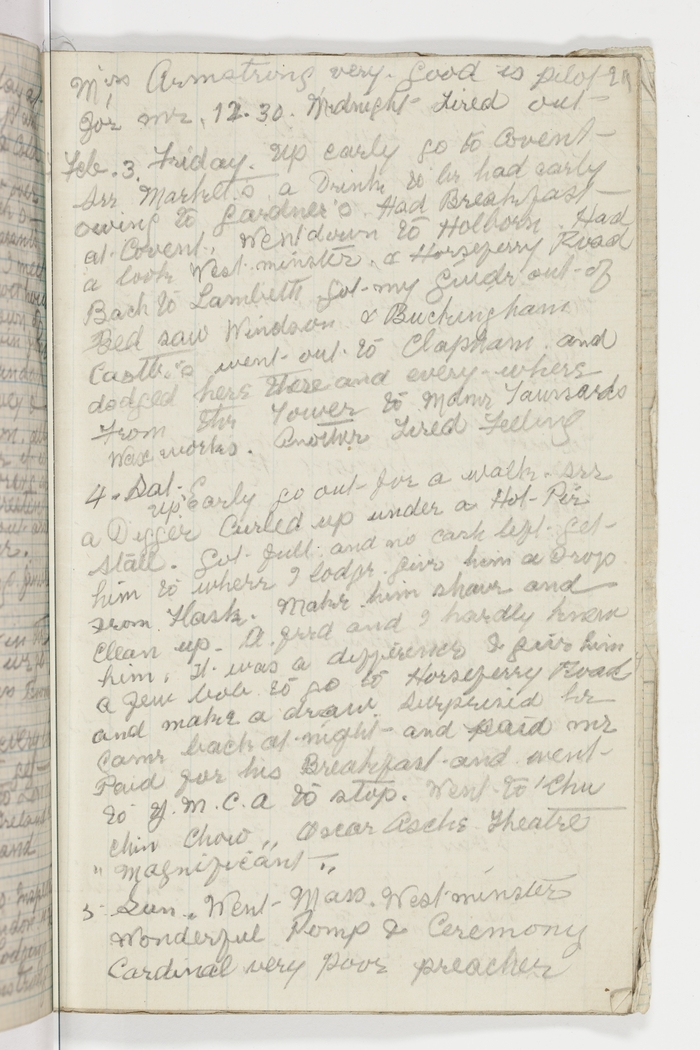 Miss Armstrong very. Good is pilot
for me. 12.30. Midnight Tired out-
Feb. 3. Friday. Up early go to Covent-
See Market.s. a Drink to be had early
owing to Gardner's. Had Breakfast-
at Covent. Went down to Holborn. Had
a look West.minster. & Horseferry Road
Back to Lambeth got my Guide out-of
Bed saw Windson & Buckingham
Castle.s went-out to Clapham. and
dodged here there and every-where
From the Tower to Mame Taussards
Wax works. Another Tired Feeling
4. Sat. Up Early go out-for a walk. See
a Digger Curled up under a Hot-Pie
stall. Got full and no cash left-get-
him to where I lodge. give him a Drop
From Flask. Make him shave and
Clean up. A feed and I hardly knew
him. It was a difference I give him
a few bob to go to Horseferry Road
and make a draw. Surprised he
came back at-night-and paid me
Paid for his Breakfast-and went-
to Y.M.C.A to stop. Went-to "Chu
Chin Chow" Oscar Asche Theatre
"Magnificant-"
5. Sun. Went-Mass. West.minster
Wonderful Pomp & Ceremony
Cardinal very Poor preacher